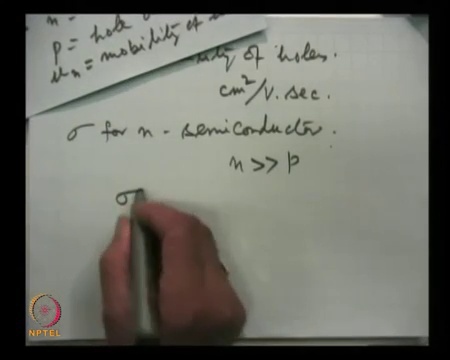 n =
p = hole
μn = mobility of
of holes.
cm²/V. sec.
σ for n - semiconductor.
n >> p
σ
NPTEL